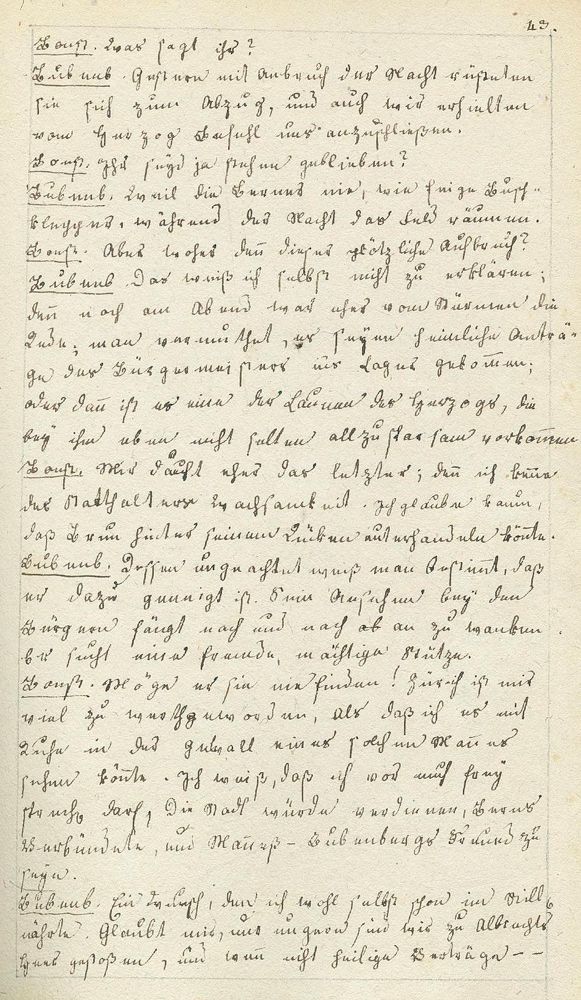 43.
Bonst. Was sagt ihr?
Bubenb. Gestern mit Anbruch der Nacht rüsteten
sie sich zum Abzug, und auch wir erhielten
vom Herzog Befehl uns anzuschließen.
Bonst. Ihr seyd ja stehen geblieben?
Bubenb. Weil die Berner nie, wie feige Busch-
klepper, während der Nacht das Feld räumen.
Bonst. Aber woher denn dieser plötzliche Aufbruch?
Bubenb. Das weiß ich selbst nicht zu erklären;
denn noch am Abend war eher vom Stürmen die
Rede; man vermuthet, es seyen heimliche Anträ-
ge des Bürgermeisters ins Lager gekommen;
oder dann ist es eine der Launen des Herzogs, die
bey ihm eben nicht selten allzu sparsam vorkom̄en
Bonst. Mir däucht eher das letzter; denn ich kenne
des Statthalters Wachsamkeit. Ich glaube kaum,
daß Brun hinter seinem Rücken unterhandeln kön̄te.
Bubenb. Dessen ungeachtet weiß man bestim̄t, daß
er dazu geneigt ist. Sein Ansehen bey den
Bürgern fängt nach und nach ab an zu wanken.
Er sucht eine fremde, mächtige Stütze.
Bonst. Möge er sie nie finden! Zürich ist mir
viel zu werth geworden, als daß ich es mit
Ruhe in der Gewalt eines solchen Man̄es
sehen kön̄te. Ich weiß, daß ich vor euch frey
sprechen darf, die Stadt würde verdienen, Berns
Verbündete, und Maneß – Bubenbergs Freund zu
seyn.
Bubenb. Ein Wunsch, den ich wohl selbst schon im Still
nährte. Glaubt mir, nur ungern sind wir zu Albrechts
Heer gestoßen, und wen̄ nicht heilige Verträge – –